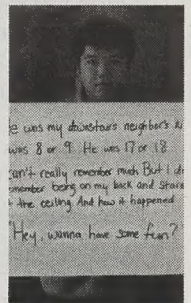 e was my downstairs neighbor's ki
was 8 or 9. He was 17 or 18
can't really remember much But I do
emember being on my back and stari
the ceiling And how it happened
"Hey, wanna have some fun?